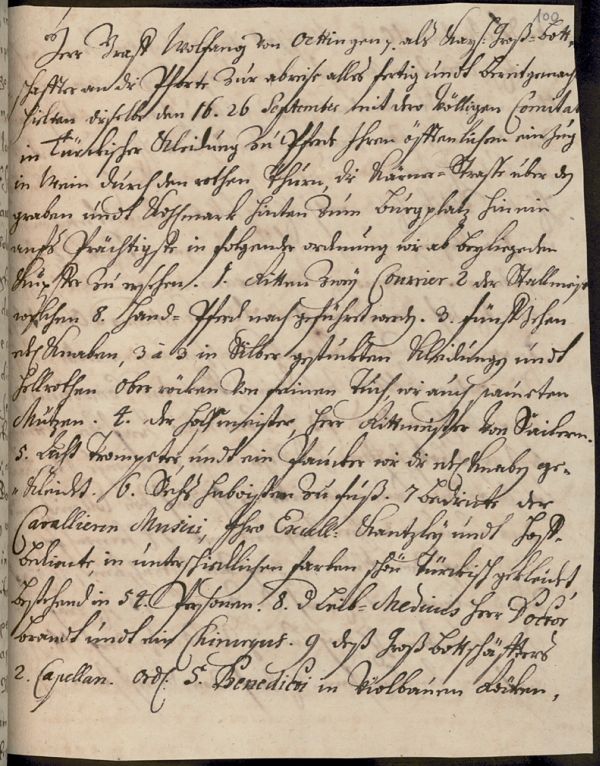 100
Herr Graff Wolfgang von Oettingen p. als Kays: Groß-Bott-
schaffter an die Pforte zur abreise alles fertig undt bereit gemacht
hielten dieselbe den 16. 26 September mit dero völligen Comitat
in Türckischer Kleidung zu Pferdt Ihren öffentlichen einzug
in Wien durch den rothen Thurn, die Kärner-Strasse über den
graben undt Kohlmark hinten zum burgplatz hinein
aufs Prächtigste in folgender ordnung wie ab beyligenden
Kupffer zu ersehen. 1. Ritten zwey Courrier 2 der Stallmeister
welchen 8. Hand-Pferdt nachgeführet wordn. 3. fünffzehen
edl Knaben, 3 à 3 in Silber gestückten Kleidungen undt
hellrothen ober röcken von feinen Tuch, wie auch sameten
Mützen. 4. der Hoffmeister, Herr Rittmeister von
5. Acht Trompeter undt ein Paucker wie die edl Knaben ge-
kleidt. 6. Sechs Huboisten zu fuß. 7 bediente der
Cavallieren Musici, Ihro Excell: Kantzley undt Hoff-
bediente, in unterschiedlichen farben schön Türckisch gekleidet
bestehend in 54. Personen. 8. d Leib-Medicus Herr Doctor
brandt undt ein Chirurgus. 9 deß Groß Bottschaffters
2. Capellan. Ord. S. Benedicti in Violbraunen Röcken,